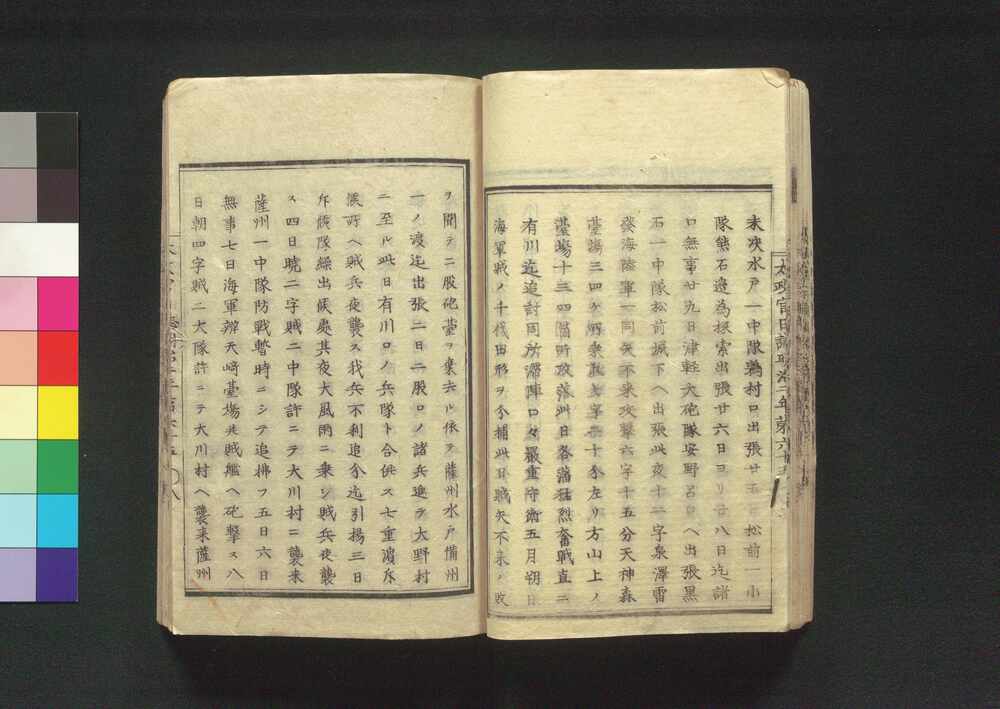 未次水戸一中隊鶉村口出張廿五日松前一小
隊熊石邊為探索出張廿六日ヨリ廿八日迄諸
口無事廿九日津軽大砲隊安野呂口ヘ出張黒
石一中隊松前城下ヘ出張此夜十二字泉澤雷
發海陸軍一同矢不来攻撃六字十五分天神森
臺場三四ヶ所乗取七字十分左リ方山上ノ
臺場十三四個所攻落此日各藩猛烈奮戦直ニ
有川迄追討同所滞陣口々嚴重守衛五月朔日
海軍賊ノ千代田形ヲ分捕此日賊矢不来ノ敗
ヲ聞テ二股砲臺ヲ棄去ル依テ薩州水戸備州
一ノ渡迄出張二日二股口ノ諸兵進テ大野村
ニ至ル此日有川口ノ兵隊ト合併ス七重濵斥
候所ヘ賊兵夜襲ス我兵不利追分迄引揚三日
斥候隊繰出候處其夜大風雨ニ乗シ賊兵夜襲
ス四日暁二字賊二中隊許ニテ大川村ニ襲来
薩州一中隊防戦暫時ニシテ追拂フ五日六日
無事七日海軍辨天﨑臺場并賊艦ヘ砲撃ス八
日朝四字賊二大隊許ニテ大川村ヘ襲来薩州